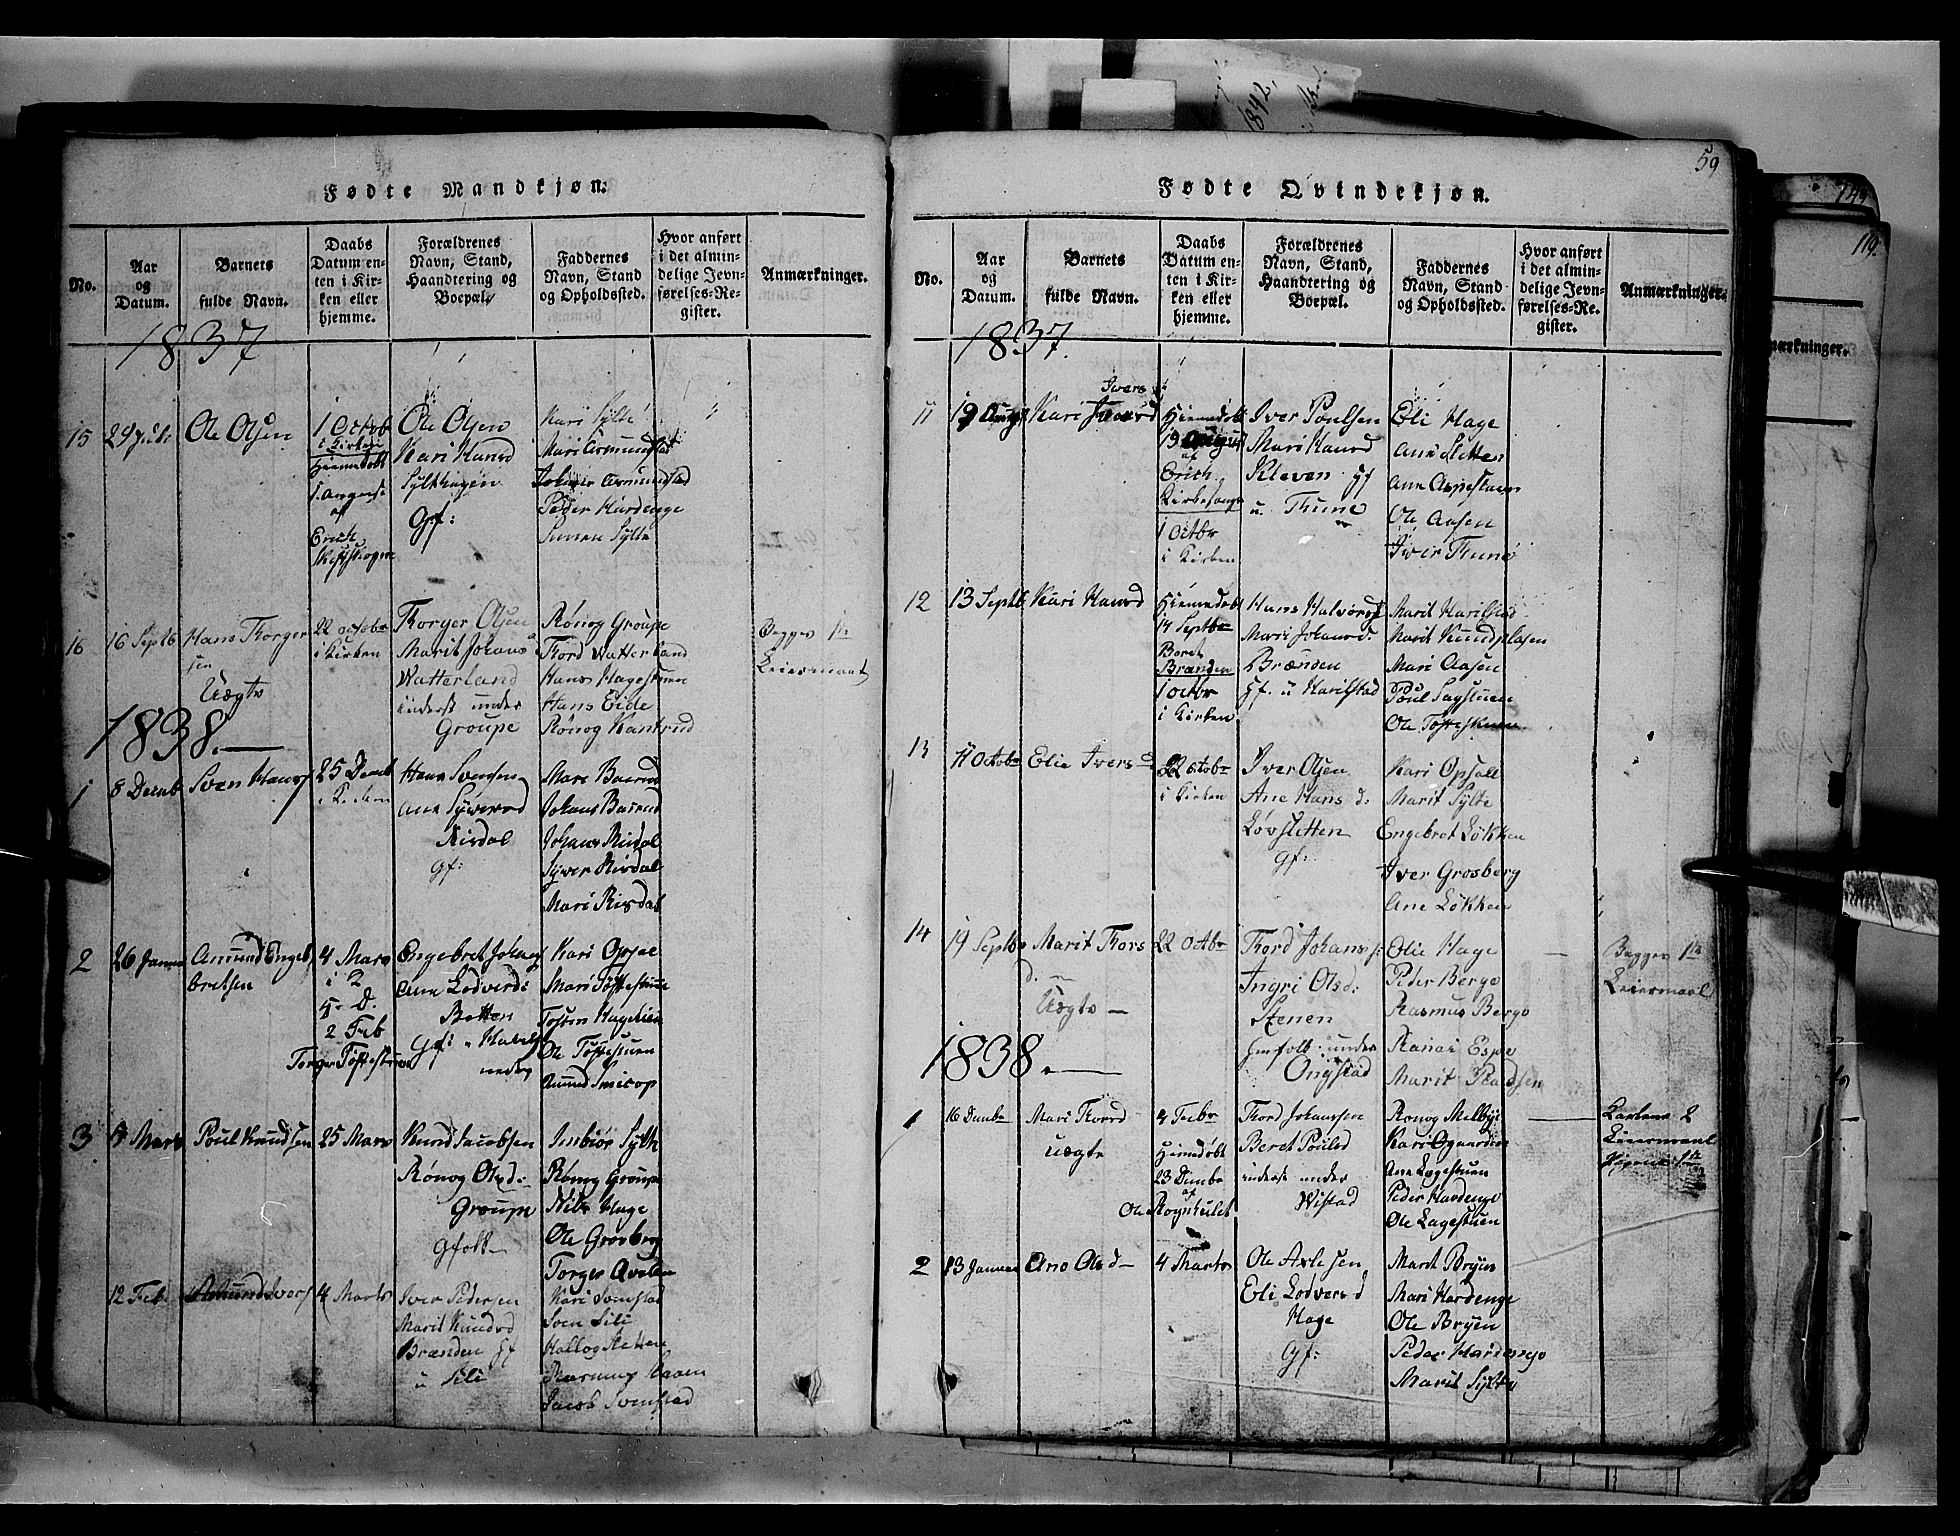 Fødte Mandkjøn.
No.
Aar og Datum.
Barnets fulde Navn.
Daabs Datum enten i Kirken eller hjemme.
Forældrenes Navn, Stand, Haandtering og Boepæl.
Faddernes Navn, Stand og Opholdssted.
Hvor anført i det almindelige Jevnførelses-Register.
Anmærkninger.
1837
15
29 Juli
Ole Olsen
1 Octob
i Kirken
Hiemedøbt
af
Erich
Ole Olsen
Kari Hansd
Sylthagen
Gf:
Kari Sylte
Mari Asmundstad
Johans Asmundstad
Peder Hardenge
Simen Sylte
16
16 Septb
Hans Thorger
sen
Uægte
22 octobr
i Kirken
Thorger Olsen
Marit Johans
Watterland
inderst under
Groupe
Rønog Groupe
Thord Watterland
Hans Hagestuen
Hans Eide
Rønog Kantrud
Begges 1te
Leiermaal
1838.
1
8 Decmb
Sven Hans
25 Decmb
i Kirken
Hans Svensen
Ane Syversd
Risdal
Gf:
Mari Baarud
Johans Baarud
Johans Risdal
Syver Risdal
Mari Risdal
2
26 Januar
Amund Engeb
bretsen
4 Mars
i K
H. D.
2 Feb
Torger Tøftestuen
Engebret Johans
Ane Lodverd
Botten
Kari Opsal
Mari Tøftestuen
Tosten Hagelien
Ole Tøftestuen
3
5 Mars
Poul Knudsen
25 Mars
Knud Jacobsen
Rønog Olsd:
Groupe
Gfolk
Imbiør Sylte
Rønog Groupe
Nils Hage
Ole Grosberg
Torger Qvelen
12 Feb
Amund Ivers
4 Marts
Iver Pedersen
Marit Knudsd
Brænden Gf
u Sili
Kari Svenstad
Sven Sili
Hallog Sletten
Rasmus Haven
Jacob Svenstad
59
Fødte Qvindekjøn.
No.
Aar og Datum.
Barnets fulde Navn.
Daabs Datum enten i Kirken eller hjemme.
Forældrenes Navn, Stand, Haandtering og Boepæl.
Faddernes Navn, Stand og Opholdssted.
Hvor anført i det almindelige Jevnførelses-Register.
Anmærkninger.
1837.
11
19 Augst
Kari Ivers
Hiemedøbt
19 August
af
Erich
Kirkesanger
1 Octbr
i Kirken
Iver Poulsen
Mari Hansd
Kleven Gf
u. Thune
Eli Hage
Ane Sletten
Ane Aspestuen
Ole Aasen
Iver Thune
12
13 Septb
Kari Hansd
Hiemedøbt
14 Septbr
Beret
Brænden
1 octbr
i Kirken
Hans Halvorsen
Mari Johansd.
Brænden
Gf. u Harilstad
Marit Harilstad
Marit Knudplasen
Mari Aasen
Poul Sagstuen
Ole Tøftestuen
13
11 Octobr
Elie Ivers d
22 octobr
i Kirken
Iver Olsen
Ane Hans d:
Løvsletten
Gf:
Kari Opsall
Marit Sylte
Engebret Løkken
Iver Grosberg
Ane Løkken
14
19 Septbr
Marit Thors
d.
Uægte
22 octbr
Thord Johanss:
Ingri Olsd:
Stenen
under
Ongstad
Elie Hage
Peder Berge
Rasmus Berge
Ranei Espe
Marit Raadsen
Begges 1te
Leiermaal
1838.
1
16 Decmbr
Mari Thord
uægte
4 Febr
Hiemedøbt
23 Decmbr
af
Ole Rognhulet
Thord Johanssen
Beret Poulsd
inderst under
Wistad
Ronog Melbye
Ane Lagestuen
Peder Hardenge
Ole Lagestuen
Karlens 2
Leiermaal
Pigens 1te
2
13 Januar
Ane Olsd
4 Marts
Ole Axlesen
Eli Lodvers d
Hage
Gf:
Marit Bryen
Mari Hardenge
Ole Bryen
Peder Hardenge
Marit Sylte
119.
1842,